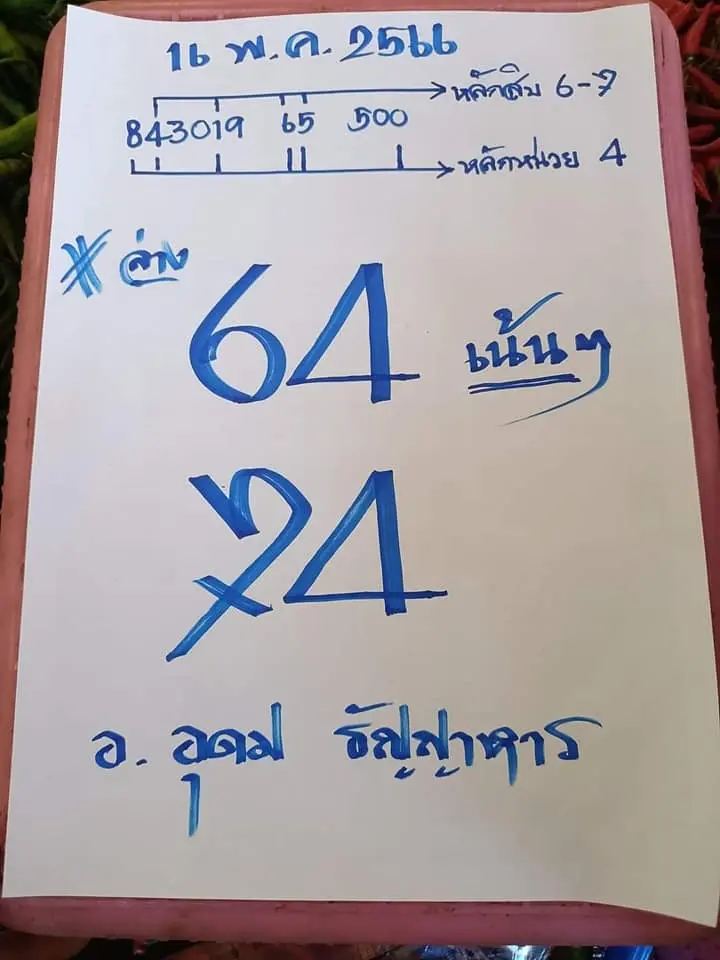 16 พ.ค. 2566
หลักสิบ 6-7
843019 65 500
หลักหน่วย 4
ล่าง
64 เน้นๆ
74
อ. อุดม ธัญญาหาร